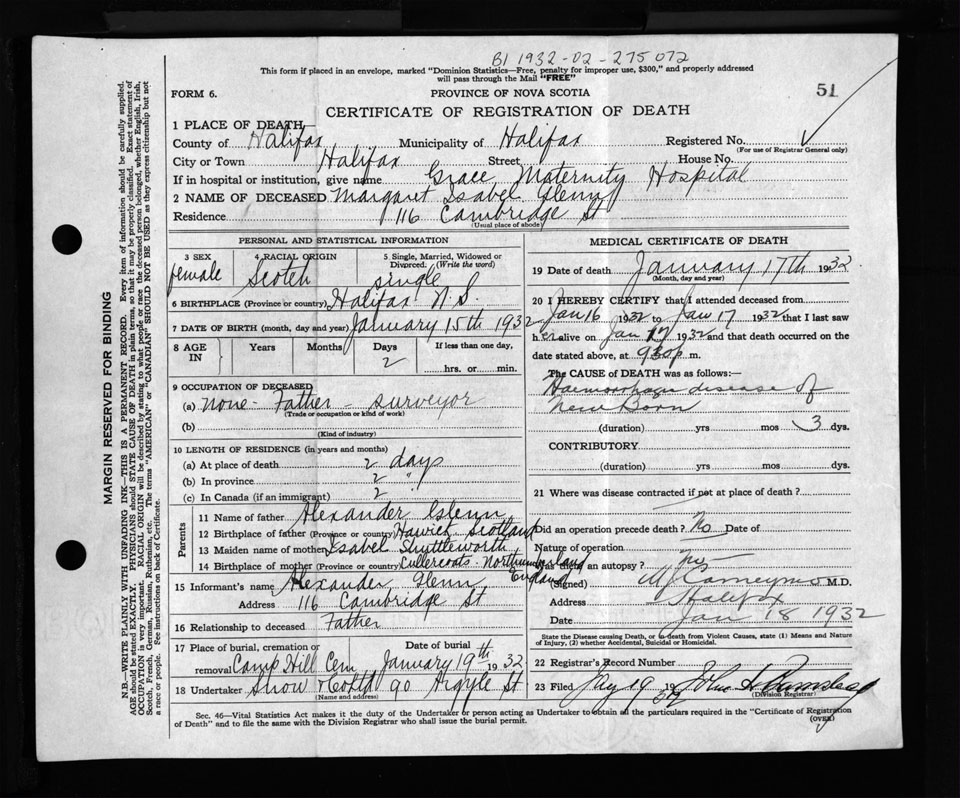 B1 1932-02-275072
This form if placed in an envelope, marked "Dominion Statistics—Free, penalty for improper use, $300," and properly addressed
will pass through the Mail "FREE"
51
FORM 6.
PROVINCE OF NOVA SCOTIA
CERTIFICATE OF REGISTRATION OF DEATH
1 PLACE OF DEATH—
County of Halifax Municipality of Halifax Registered No.
(For use of Registrar General only)
City or Town Halifax Street House No.
If in hospital or institution, give name Grace Maternity Hospital
2 NAME OF DECEASED Margaret Isabel Glenn
Residence 116 Cambridge St
(Usual place of abode)
PERSONAL AND STATISTICAL INFORMATION
3 SEX female
4 RACIAL ORIGIN Scotch
5 Single, Married, Widowed or Divorced. (Write the word) single
6 BIRTHPLACE (Province or country) Halifax N.S.
7 DATE OF BIRTH (month, day and year) January 15th 1932
8 AGE IN Years Months Days 2 If less than one day, hrs. or min.
9 OCCUPATION OF DECEASED
(a) none - Father - surveyor
(Trade or occupation or kind of work)
(b)
(Kind of industry)
10 LENGTH OF RESIDENCE (in years and months)
(a) At place of death 2 days
(b) In province 2 "
(c) In Canada (if an immigrant) 2 "
Parents
11 Name of father Alexander Glenn
12 Birthplace of father (Province or country) Hawick Scotland
13 Maiden name of mother Isabel Shuttleworth
14 Birthplace of mother (Province or country) Cullercoats Northumberland England
15 Informant's name Alexander Glenn
Address 116 Cambridge St
16 Relationship to deceased Father
17 Place of burial, cremation or removal Camp Hill Cem Date of burial January 19th 1932
18 Undertaker Snow & Co Ltd 90 Argyle St
(Name and address)
MEDICAL CERTIFICATE OF DEATH
19 Date of death January 17th 1932
(Month, day and year)
20 I HEREBY CERTIFY that I attended deceased from
Jan 16 1932 to Jan 17 1932 that I last saw
her alive on Jan 17 1932 and that death occurred on the
date stated above, at 930 p.m.
The CAUSE of DEATH was as follows:—
Haemorrhagic disease of
New Born
(duration) yrs mos 3 dys.
CONTRIBUTORY
(duration) yrs. mos. dys.
21 Where was disease contracted if not at place of death?
Did an operation precede death? No Date of
Nature of operation
Was there an autopsy? no
(Signed) M.D.
Address Halifax
Date Jan 18 1932
State the Disease causing Death, or in death from Violent Causes, state (1) Means and Nature
of Injury, (2) whether Accidental, Suicidal or Homicidal.
22 Registrar's Record Number
23 Filed Jany 19 1932 John
(Division Registrar)
Sec. 46—Vital Statistics Act makes it the duty of the Undertaker or person acting as Undertaker to obtain all the particulars required in the "Certificate of Registration
of Death" and to file the same with the Division Registrar who shall issue the burial permit.
(OVER)
MARGIN RESERVED FOR BINDING
N.B.—WRITE PLAINLY WITH UNFADING INK—THIS IS A PERMANENT RECORD. Every item of information should be carefully supplied.
AGE should be stated EXACTLY. PHYSICIANS should STATE CAUSE OF DEATH in plain terms, so that it may be properly classified. Exact statement of
OCCUPATION is very important. RACIAL ORIGIN will be described by stating to what people or race the deceased person belonged, whether English, Irish,
Scotch, French, German, Russian, Ruthenian, etc. The terms "AMERICAN" or "CANADIAN" SHOULD NOT BE USED as they express citizenship but not
a race or people. See instructions on back of Certificate.